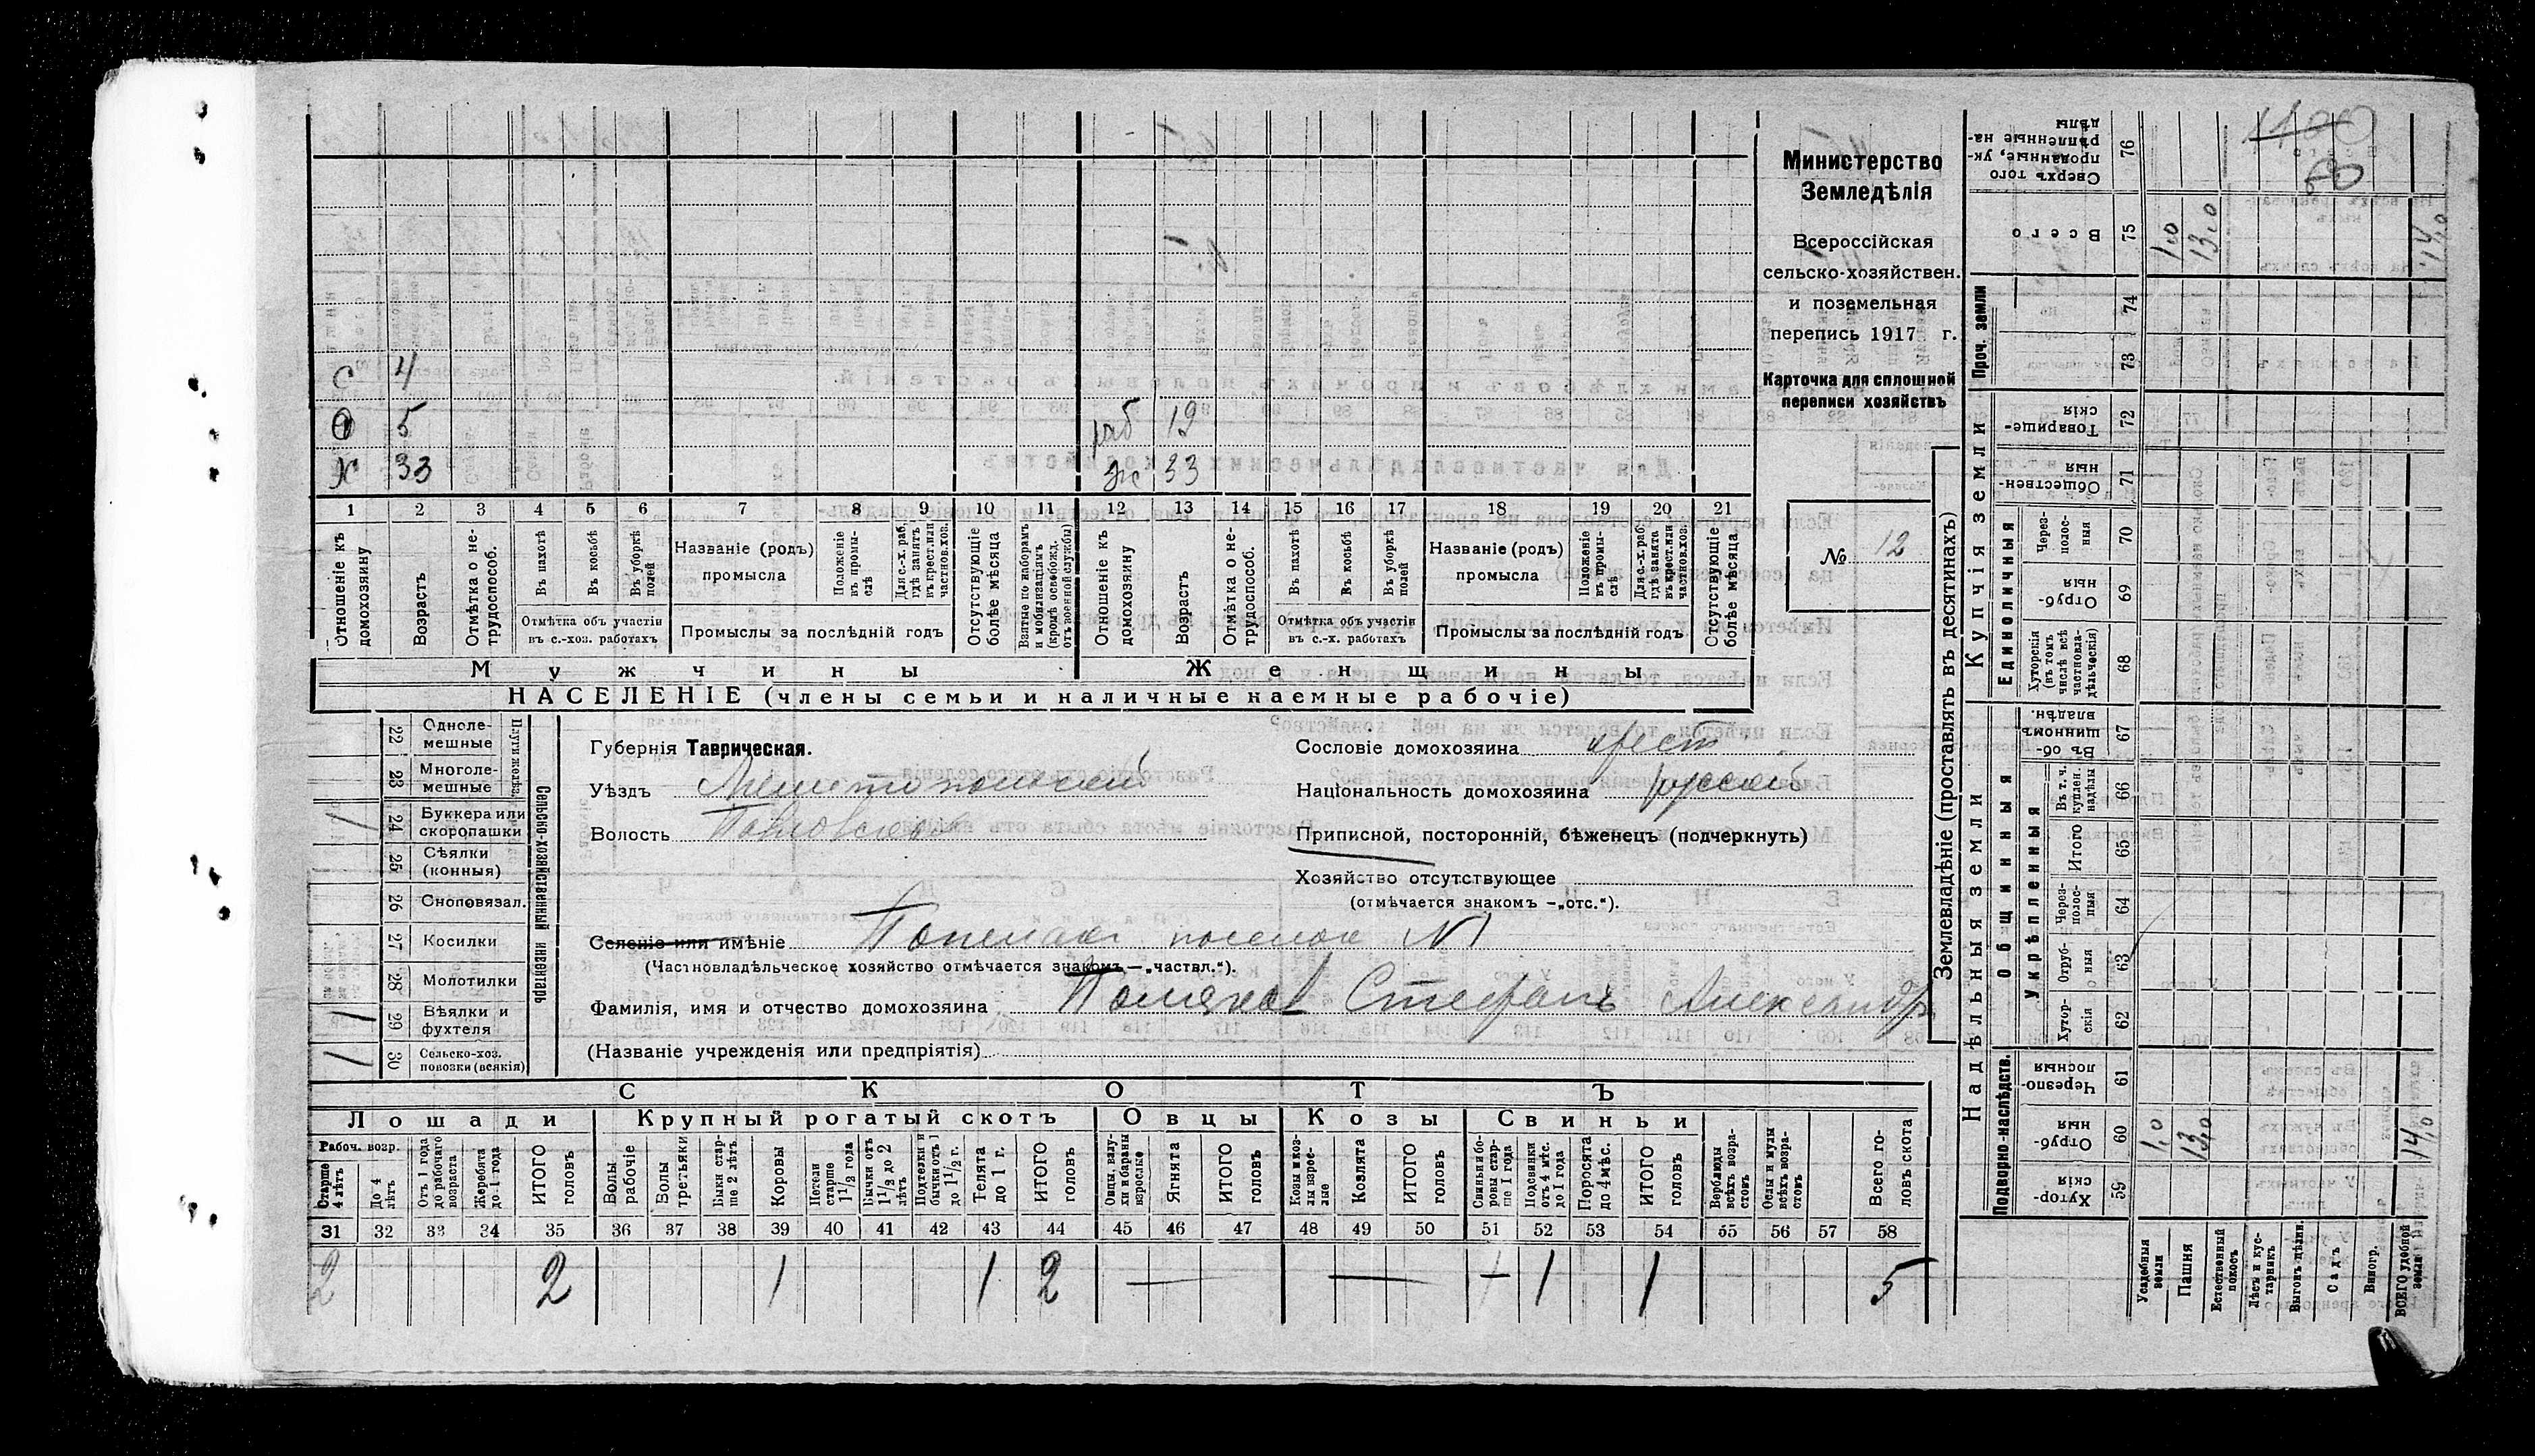 С 4
О 5
Х 33
раб 19
ж 33
1 2 3 4 5 6 7 8 9 10 11 12 13 14 15 16 17 18 19 20 21
Отношеніе къ домохозяину
Возрастъ
Отмѣтка о нетрудоспособ.
Въ пахотѣ
Въ косьбѣ
Въ уборкѣ полей
Отмѣтка объ участіи въ с.-хоз. работахъ
Названіе (родъ) промысла
Положеніе въ промыслѣ
Для с.-х. раб., гдѣ занятъ въ крест. или частнов. хоз.
Промыслы за послѣдній годъ
Отсутствующіе болѣе мѣсяца
Взятые по наборамъ и мобилизаціямъ (кромѣ освобожд. отъ военной службы)
Отношеніе къ домохозяину
Возрастъ
Отмѣтка о нетрудоспособ.
Въ пахотѣ
Въ косьбѣ
Въ уборкѣ полей
Отмѣтка объ участіи въ с.-х. работахъ
Названіе (родъ) промысла
Положеніе въ промыслѣ
Для с.-х. раб. гдѣ занята въ крест. или частнов. хоз.
Промыслы за послѣдній годъ
Отсутствующіе болѣе мѣсяца
Мужчины
Женщины
НАСЕЛЕНІЕ (члены семьи и наличные наемные рабочіе)
Министерство
Земледѣлія
Всероссійская
сельско-хозяйствен.
и поземельная
перепись 1917 г.
Карточка для сплошной
переписи хозяйствъ
№ 12
Сельско-хозяйственный инвентарь
Плуги желѣз.
22 Однолемешные
23 Многолемешные
24 Буккера или скоропашки 1
25 Сѣялки (конныя)
26 Сноповязал.
27 Косилки
28 Молотилки
29 Вѣялки и фухтеля 1
30 Сельско-хоз. повозки (всякія) 1
Губернія Таврическая.
Уѣздъ Мелитопольскій
Волость Павловская
Сословіе домохозяина крест
Національность домохозяина русской
Приписной, посторонній, бѣженецъ (подчеркнуть)
Хозяйство отсутствующее
(отмѣчается знакомъ —„отс.“).
Селеніе или имѣніе поселок №1
(Частновладѣльческое хозяйство отмѣчается знакомъ —„частвл.“).
Фамилія, имя и отчество домохозяина Поляков Стефанъ Александр
(Названіе учрежденія или предпріятія)
СКОТЪ
Лошади
Крупный рогатый скотъ
Овцы
Козы
Свиньи
Рабоч. возр.
Старше 4 лѣтъ
До 4 лѣтъ
Отъ 1 года до рабочаго возраста
Жеребята до 1 года
ИТОГО головъ
Волы рабочіе
Волы третьяки
Быки старше 2 лѣтъ
Коровы
Нетели старше 1 1/2 года
Бычки отъ 1 1/2 до 2 лѣтъ
Подтелки и бычки отъ 1 до 1 1/2 г.
Телята до 1 г.
ИТОГО головъ
Овцы, валухи и бараны взрослые
Ягнята
ИТОГО головъ
Козы и козлы взрослые
Козлята
ИТОГО головъ
Свиньи и боровы старше 1 года
Подсвинки отъ 4 мѣс. до 1 года
Поросята до 4 мѣс.
ИТОГО головъ
Верблюды всѣхъ возрастовъ
Ослы и мулы всѣхъ возрастовъ
Всего головъ скота
31 32 33 34 35 36 37 38 39 40 41 42 43 44 45 46 47 48 49 50 51 52 53 54 55 56 57 58
2 2 1 1 2 — — — 1 1 5
Землевладѣніе (проставлять въ десятинахъ)
Купчія земли
Надѣльныя земли
Проч. земли
Единоличныя
Общинныя
Укрѣпленныя
Подворно-наслѣдств.
Сверхъ того проданные, укрѣпленные надѣлы 76
Всего 75 1,0 13,0 14,0
74
73
Товарищескія 72
Общественныя 71
Черезполосныя 70
Отрубныя 69
Хуторскія (въ томъ числѣ всѣ частновладѣльческія) 68
Въ общинномъ владѣн. 67
Въ т. ч. куплен. надѣлы 66
Итого 65
Черезполосныя 64
Отрубныя 63
Хуторскія 62
Черезполосныя 61
Отрубныя 60 1,0 13,0 14,0
Хуторскія 59
Усадебныя земли
Пашня
Естественный покосъ
Лѣсъ и кустарникъ
Выгонъ цѣлин.
Садъ
Виногр.
ВСЕГО удобной земли